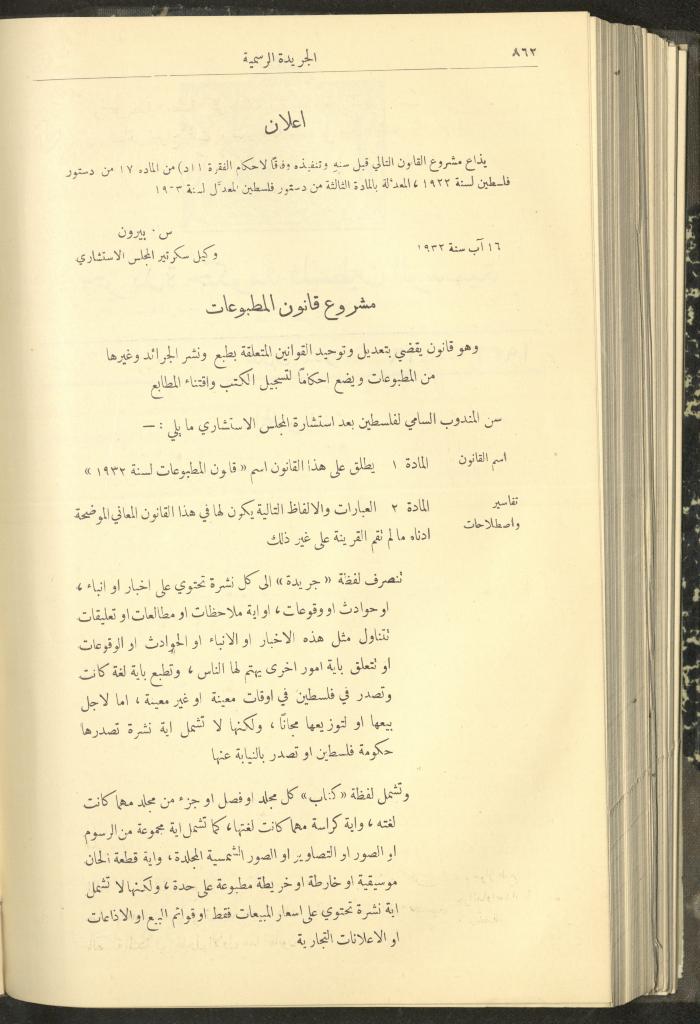 ٨٦٢
الجريدة الرسمية
اعلان
يذاع مشروع القانون التالي قبل سنه وتنفيذه وفقًا لاحكام الفقرة ١ (د) من المادة ١٧ من دستور
فلسطين لسنة ١٩٢٢ ، المعدلة بالمادة الثالثة من دستور فلسطين المعدل لسنة
١٦ آب سنة ١٩٣٢
س · بيرون
وكيل سكرتير المجلس الاستشاري
مشروع قانون المطبوعات
وهو قانون يقضي بتعديل وتوحيد القوانين المتعلقة بطبع ونشر الجرائد وغيرها
من المطبوعات ويضع احكامًا لتسجيل الكتب واقتناء المطابع
سن المندوب السامي لفلسطين بعد استشارة المجلس الاستشاري ما يلي : —
اسم القانون
المادة ١ يطلق على هذا القانون اسم « قانون المطبوعات لسنة ١٩٣٢ »
تفاسير
واصطلاحات
المادة ٢ العبارات والالفاظ التالية يكون لها في هذا القانون المعاني الموضحة
ادناه ما لم تقم القرينة على غير ذلك
تنصرف لفظة « جريدة » الى كل نشرة تحتوي على اخبار او انباء ،
او حوادث او وقوعات ، او اية ملاحظات او مطالعات او تعليقات
تتناول مثل هذه الاخبار او الانباء او الحوادث او الوقوعات
او تتعلق باية امور اخرى يهتم لها الناس ، وتطبع باية لغة كانت
وتصدر في فلسطين في اوقات معينة او غير معينة ، اما لاجل
بيعها او لتوزيعها مجانًا ، ولكنها لا تشمل اية نشرة تصدرها
حكومة فلسطين او تصدر بالنيابة عنها
وتشمل لفظة « كتاب » كل مجلد او فصل او جزء من مجلد مهما كانت
لغته ، واية كراسة مهما كانت لغتها ، كما تشمل اية مجموعة من الرسوم
او الصور او التصاوير او الصور الشمسية المجلدة ، واية قطعة الحان
موسيقية او خارطة او خريطة مطبوعة على حدة ، ولكنها لا تشمل
اية نشرة تحتوي على اسعار المبيعات فقط او قوائم البيع او الاذاعات
او الاعلانات التجارية